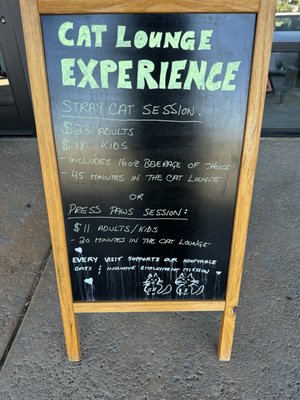 CAT LOUNGE
EXPERIENCE
STRAY CAT SESSION:
$23 ADULTS
$18 KIDS
- INCLUDES 16OZ BEVERAGE OF CHOICE
- 45 MINUTES IN THE CAT LOUNGE
OR
PRESS PAWS SESSION:
$11 ADULTS/KIDS
- 20 MINUTES IN THE CAT LOUNGE
EVERY VISIT SUPPORTS OUR ADOPTABLE
CATS & INCLUSIVE EMPLOYMENT MISSION